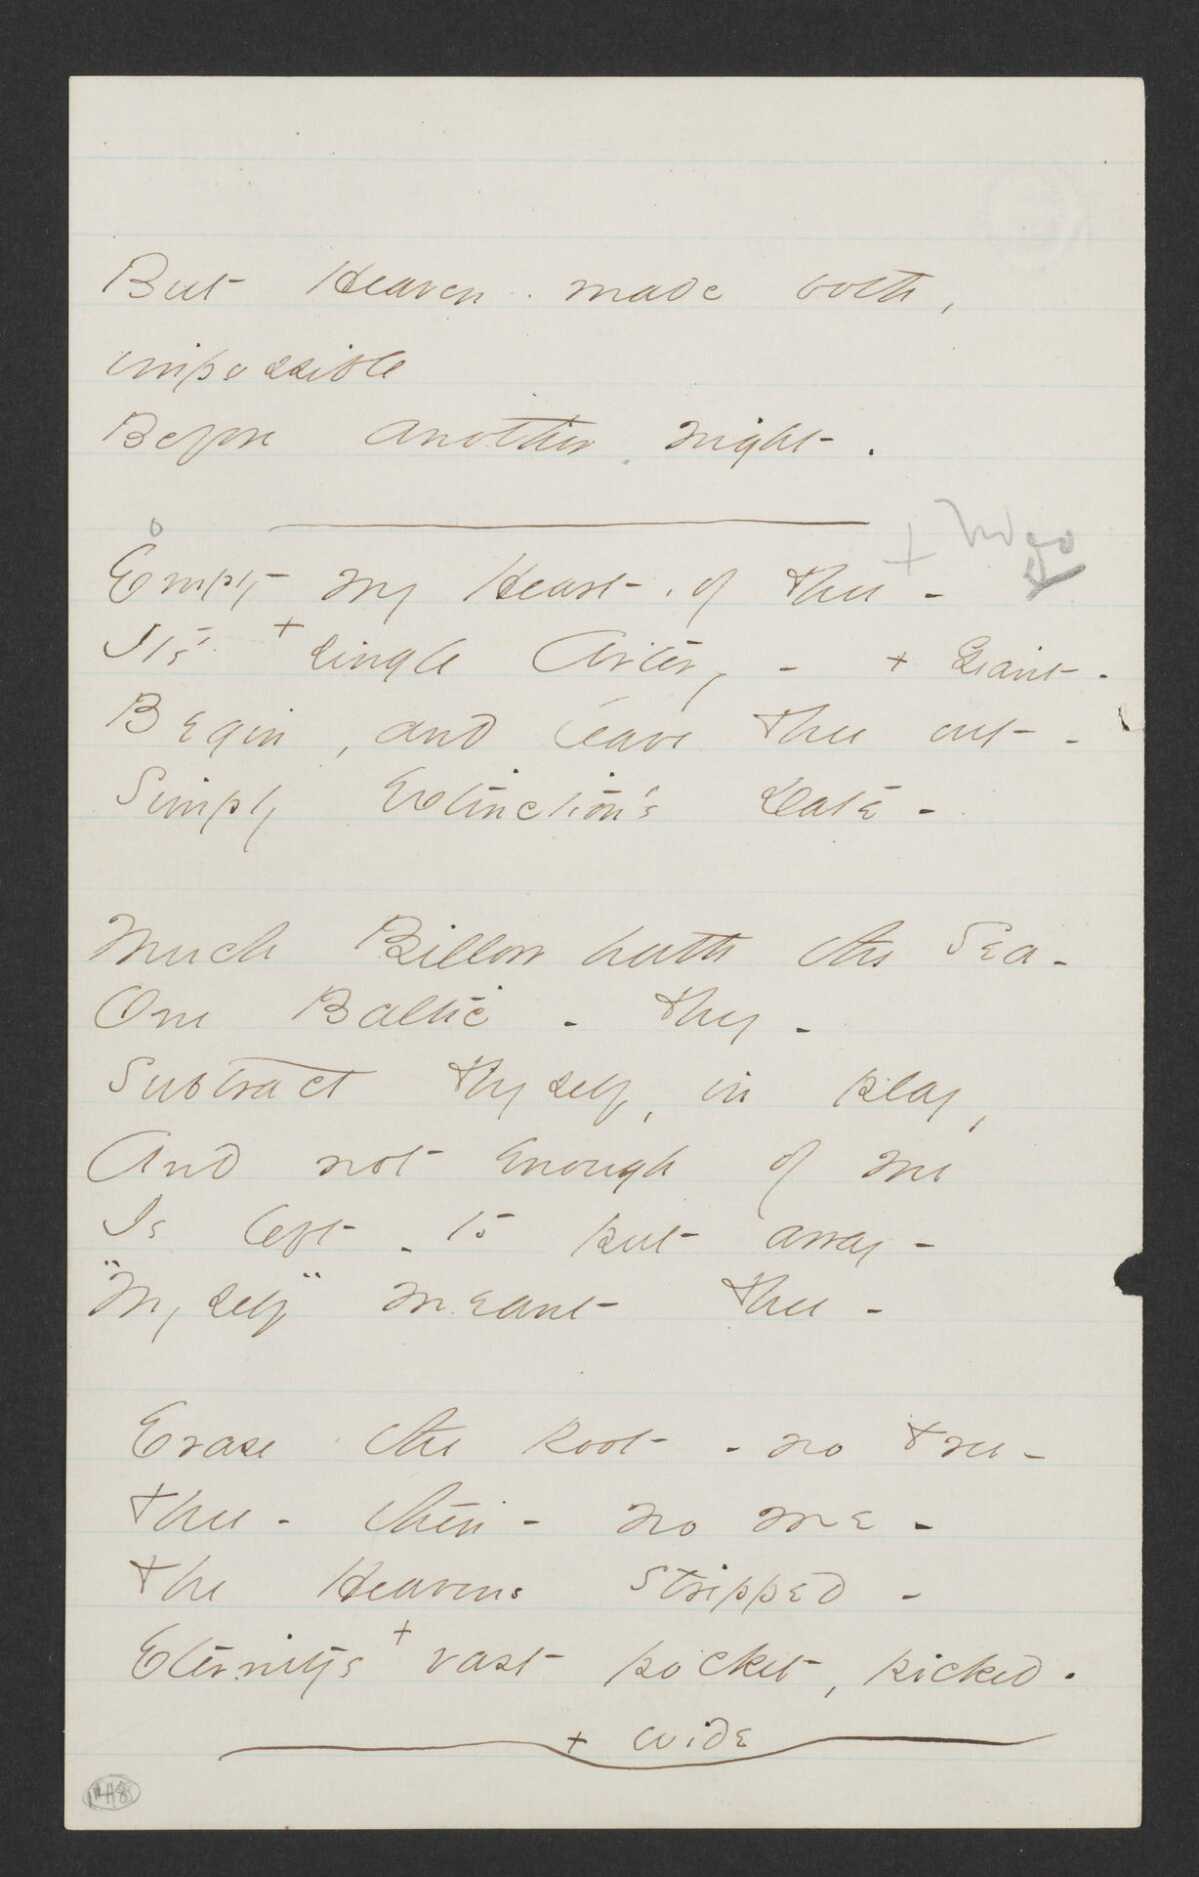 But Heaven made both,
impossible
Before another night.
Empty my Heart, of Thee -
Its + single Artery - + Giant -
Begin, and leave Thee out -
Simply Extinction's Date -
Much Billow hath the Sea -
One Baltic - They -
Subtract Thyself, in play,
And not enough of me
Is left - to put away -
"Myself" meant Thee -
Erase the Root - no Tree -
Thee - then - no me -
The Heavens stripped -
Eternity's + vast pocket, picked.
+ wide
148